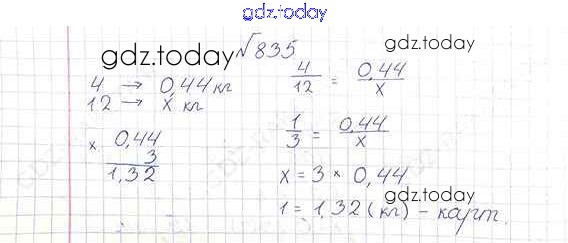 gdz.today
gdz.today
√835
gdz.today
4 → 0,44 кг
12 → x кг
4/12 = 0,44/x
x 0,44
3
1,32
1/3 = 0,44/x
x = 3 * 0,44
gdz.today
1 = 1,32 (кг) - карт.